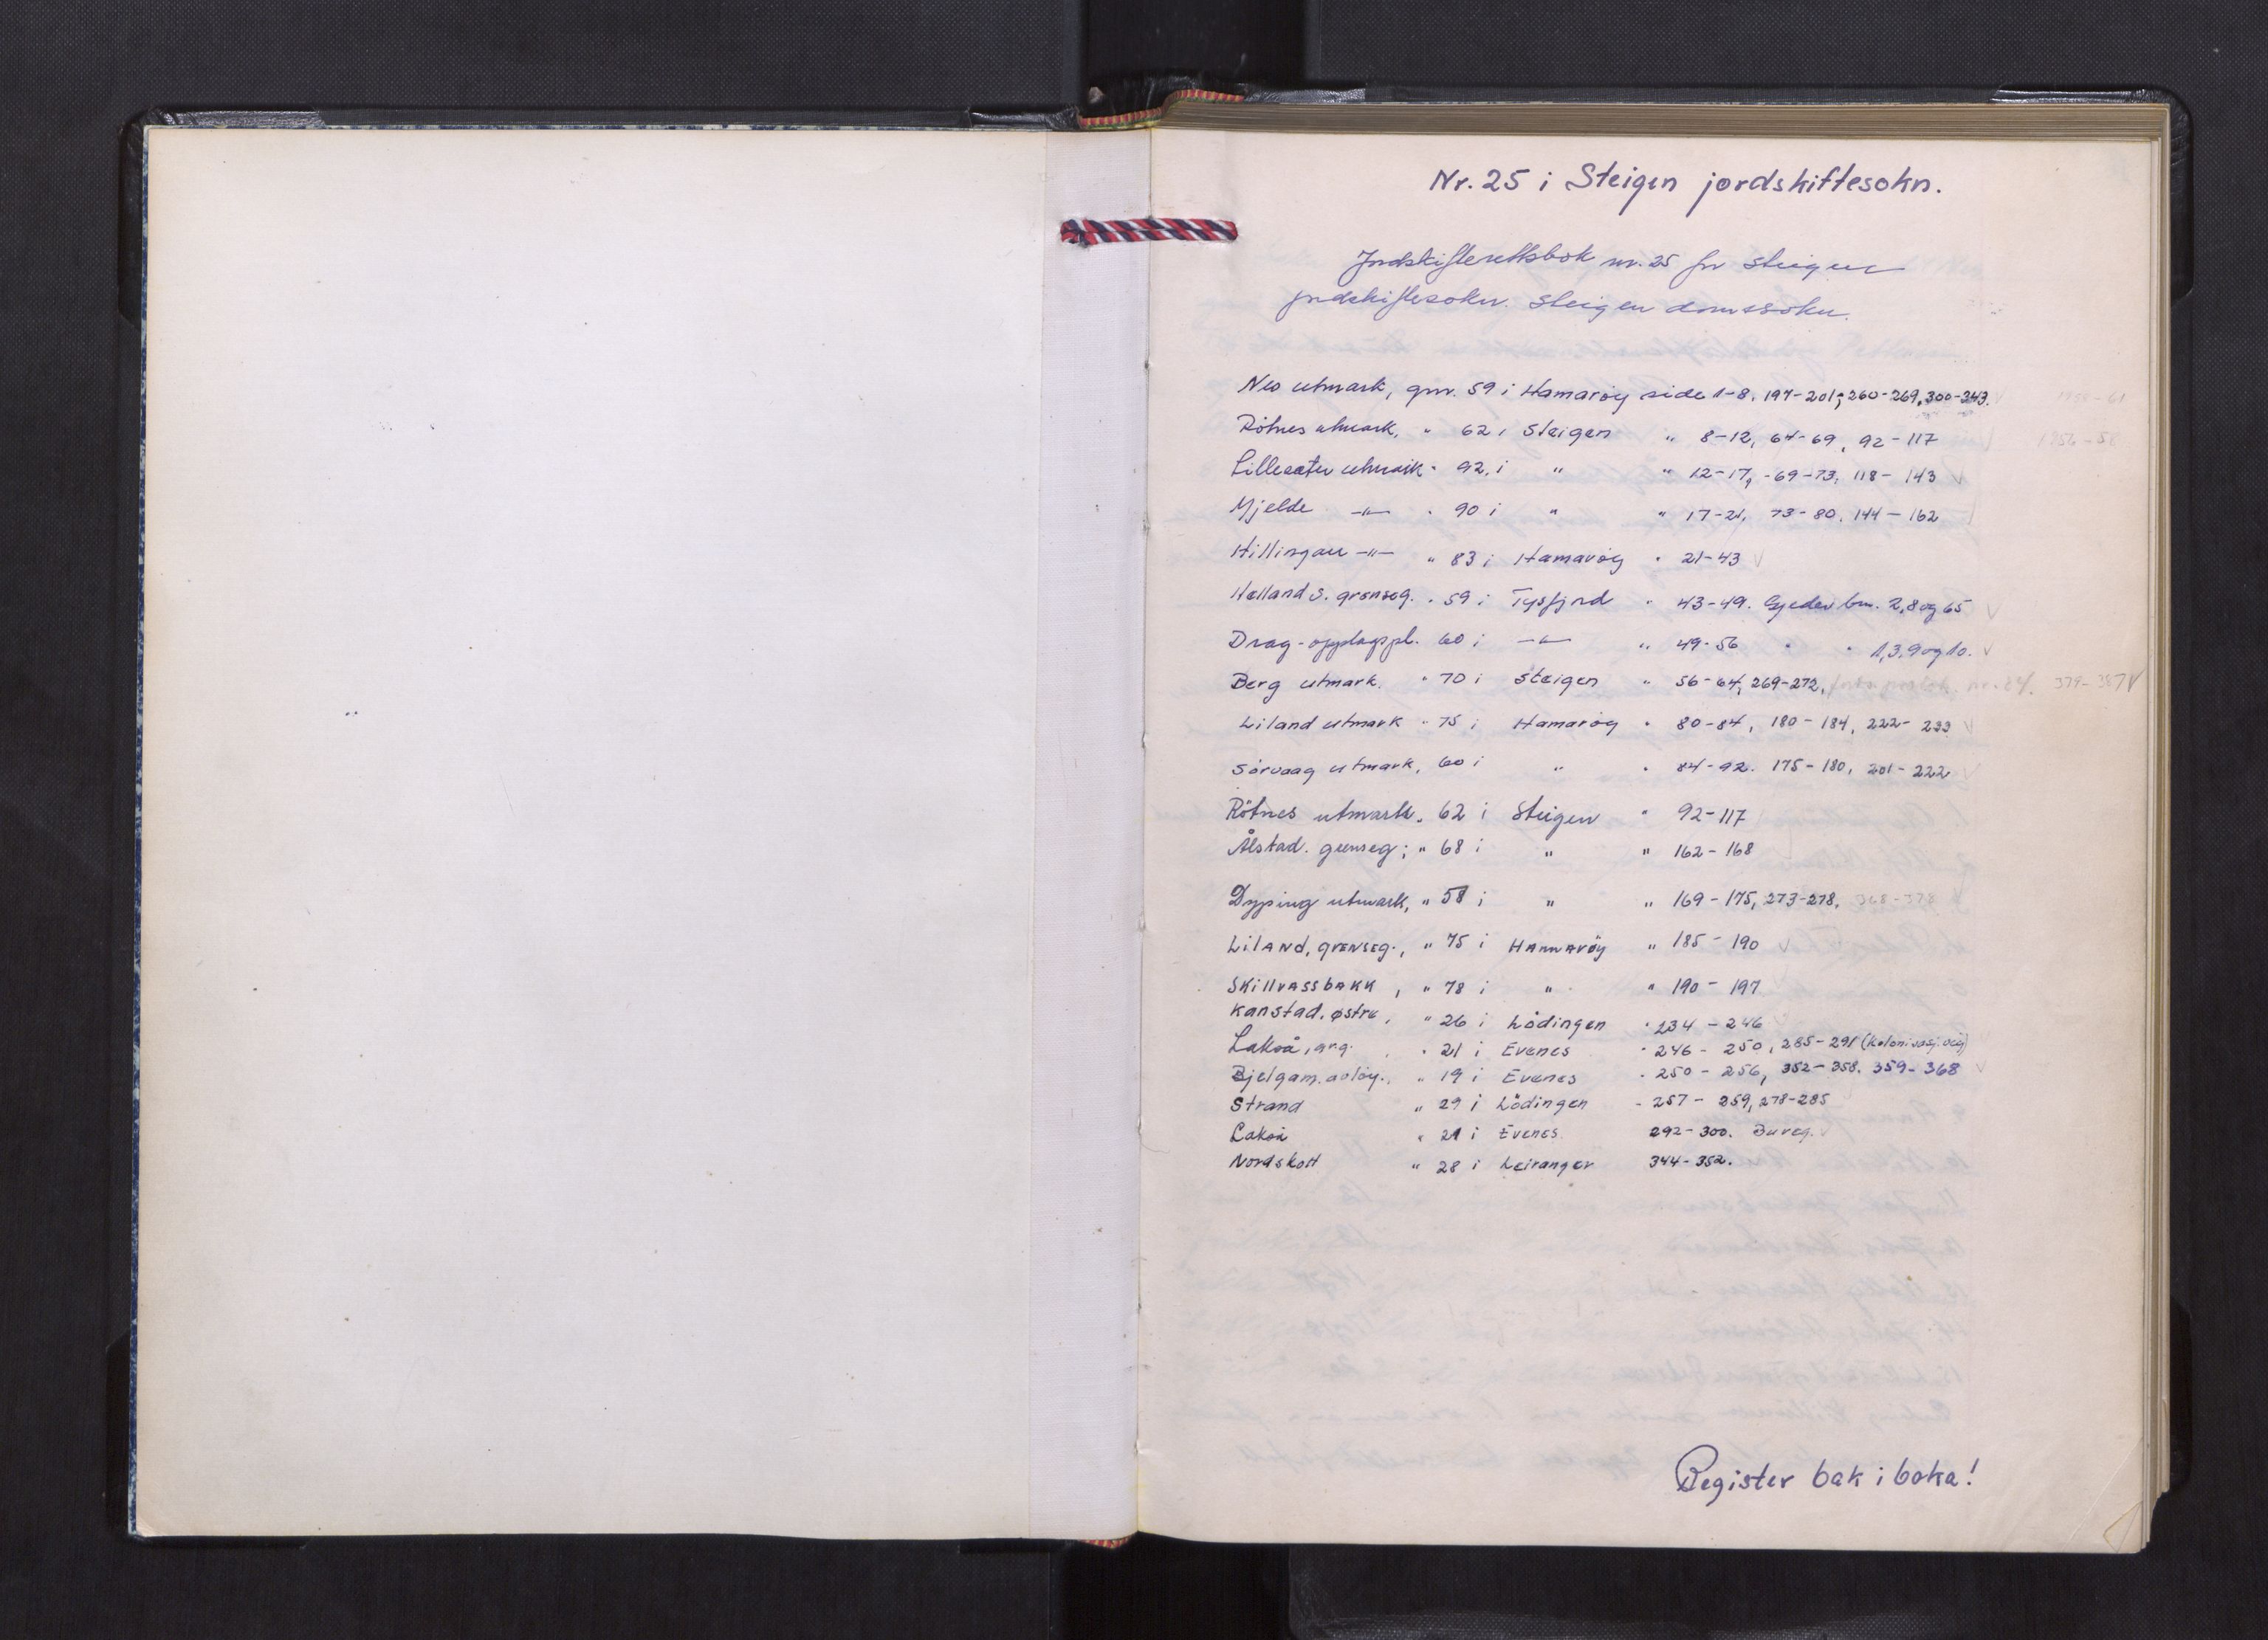 Nr. 25 i Steigen jordskiftesokn.
Jordskifterettsbok nr. 25 for Steigen
jordskiftesokn. Steigen domssokn.
Nes utmark, gnr. 59 i Hamarøy side 1-8, 197-201; 260-269, 300-343. 1958-61
Rötnes utmark, " 62 i Steigen " 8-12, 64-69, 92-117 1956-58
Lillesæter utmark " 92, i " " 12-17, -69-73, 118-143
Mjelde -"- " 90 i " " 17-21, 73-80, 144-162
Hillingan -"- " 83 i Hamarøy " 21-43
Helland s. grenseg. " 59 i Tysfjord " 43-49. Gjelder bnr. 2, 8 og 65
Drag-opplagspl. 60 i -"- " 49-56 " " 1, 3, 9 og 10.
Berg utmark. " 70 i Steigen " 56-64, 269-272, 379-387
Liland utmark " 75 i Hamarøy " 80-84, 180-184, 222-233
Sørvaag utmark, 60 i " " 84-92. 175-180, 201-222
Rötnes utmark. 62 i Steigen " 92-117
Ålstad. grenseg; " 68 i " " 162-168
Dyping utmark, " 58 i " " 169-175, 273-278, 368-378
Liland, grenseg., " 75 i Hamarøy " 185-190
Skillvassbakk, " 78 i " " 190-197
Kanstad, østre, " 26 i Lödingen " 234-246
Lakså, grg. " 21 i Evenes " 246-250, 285-291 (Kolonisasj. veg)
Bjelgam. avløy., " 19 i Evenes " 250-256, 352-358. 359-368
Strand " 29 i Lödingen - 257-259, 278-285
Lakså " 21 i Evenes 292-300. Buveg.
Nordskott " 28 i Leiranger 344-352.
Register bak i boka!